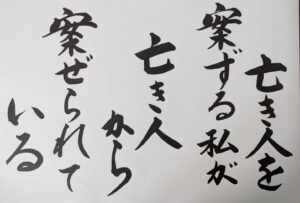 亡き人を
案ずる私が
亡き人
から
案ぜられて
いる